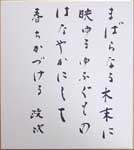 まばらなる木末に
映ゆるゆふぐもの
はなやかにして
春ちかづける